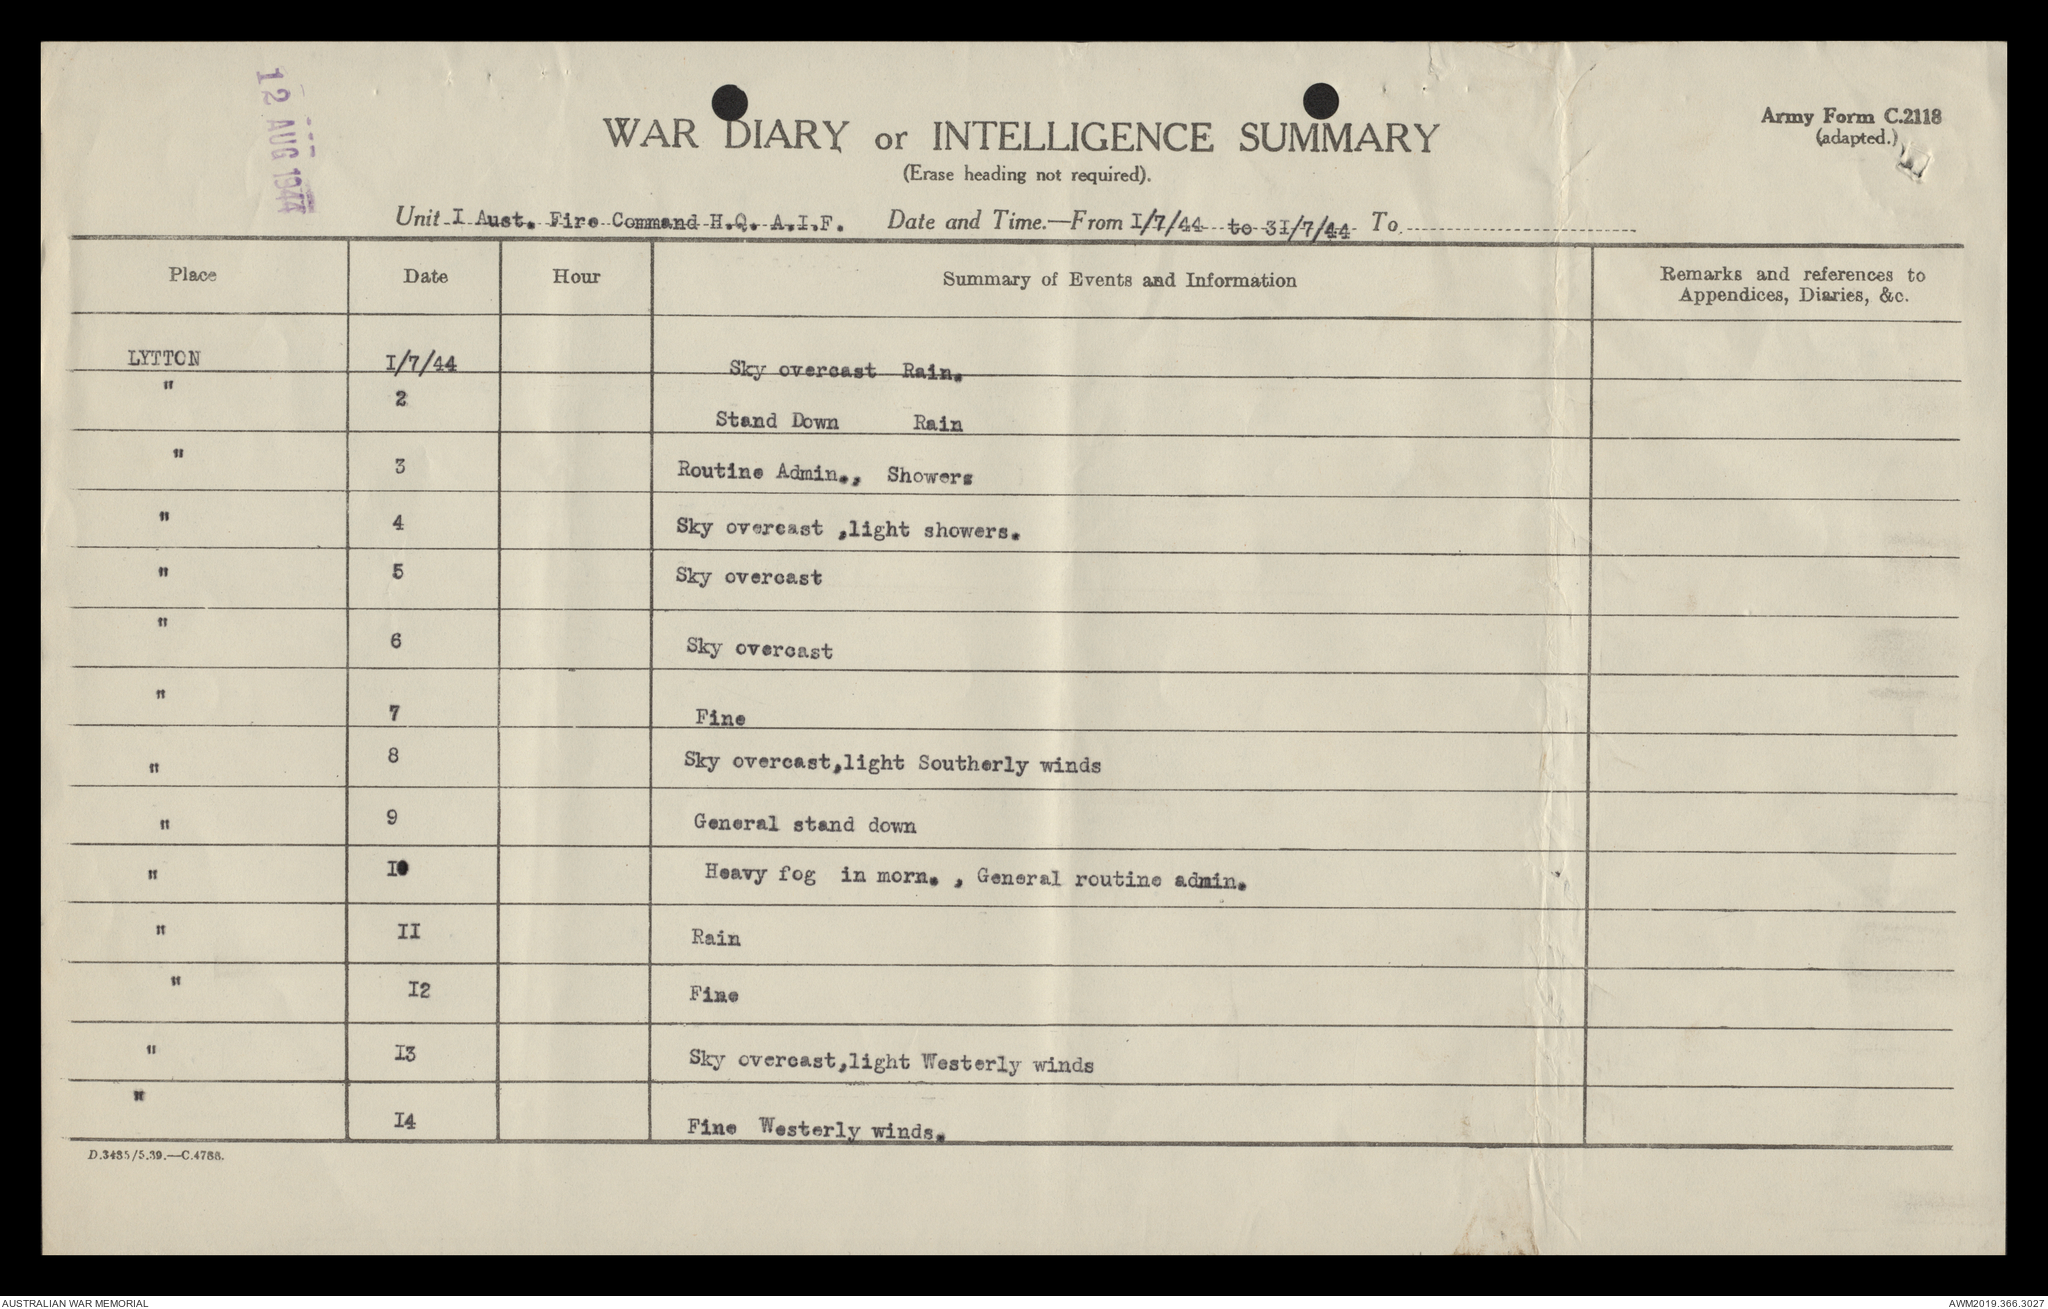 12 AUG 1944
WAR DIARY or INTELLIGENCE SUMMARY
(Erase heading not required).
Army Form C.2118
(adapted.)
Unit I Aust. Fire Command H.Q. A.I.F. Date and Time.—From I/7/44 to 3I/7/44 To
Place Date Hour Summary of Events and Information Remarks and references to
Appendices, Diaries, &c.
LYTTON I/7/44 Sky overcast Rain.
" 2 Stand Down Rain
" 3 Routine Admin., Showers
" 4 Sky overcast ,light showers.
" 5 Sky overcast
" 6 Sky overcast
" 7 Fine
" 8 Sky overcast,light Southerly winds
" 9 General stand down
" I0 Heavy fog in morn. , General routine admin.
" II Rain
" I2 Fine
" I3 Sky overcast,light Westerly winds
" I4 Fine Westerly winds.
D.3435/5.39.—C.4788.
AUSTRALIAN WAR MEMORIAL AWM2019.366.3027